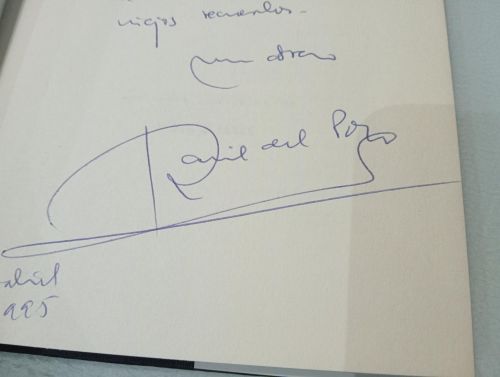 viejos recuerdos.
un abrazo
Raúl del Pozo
abril
995